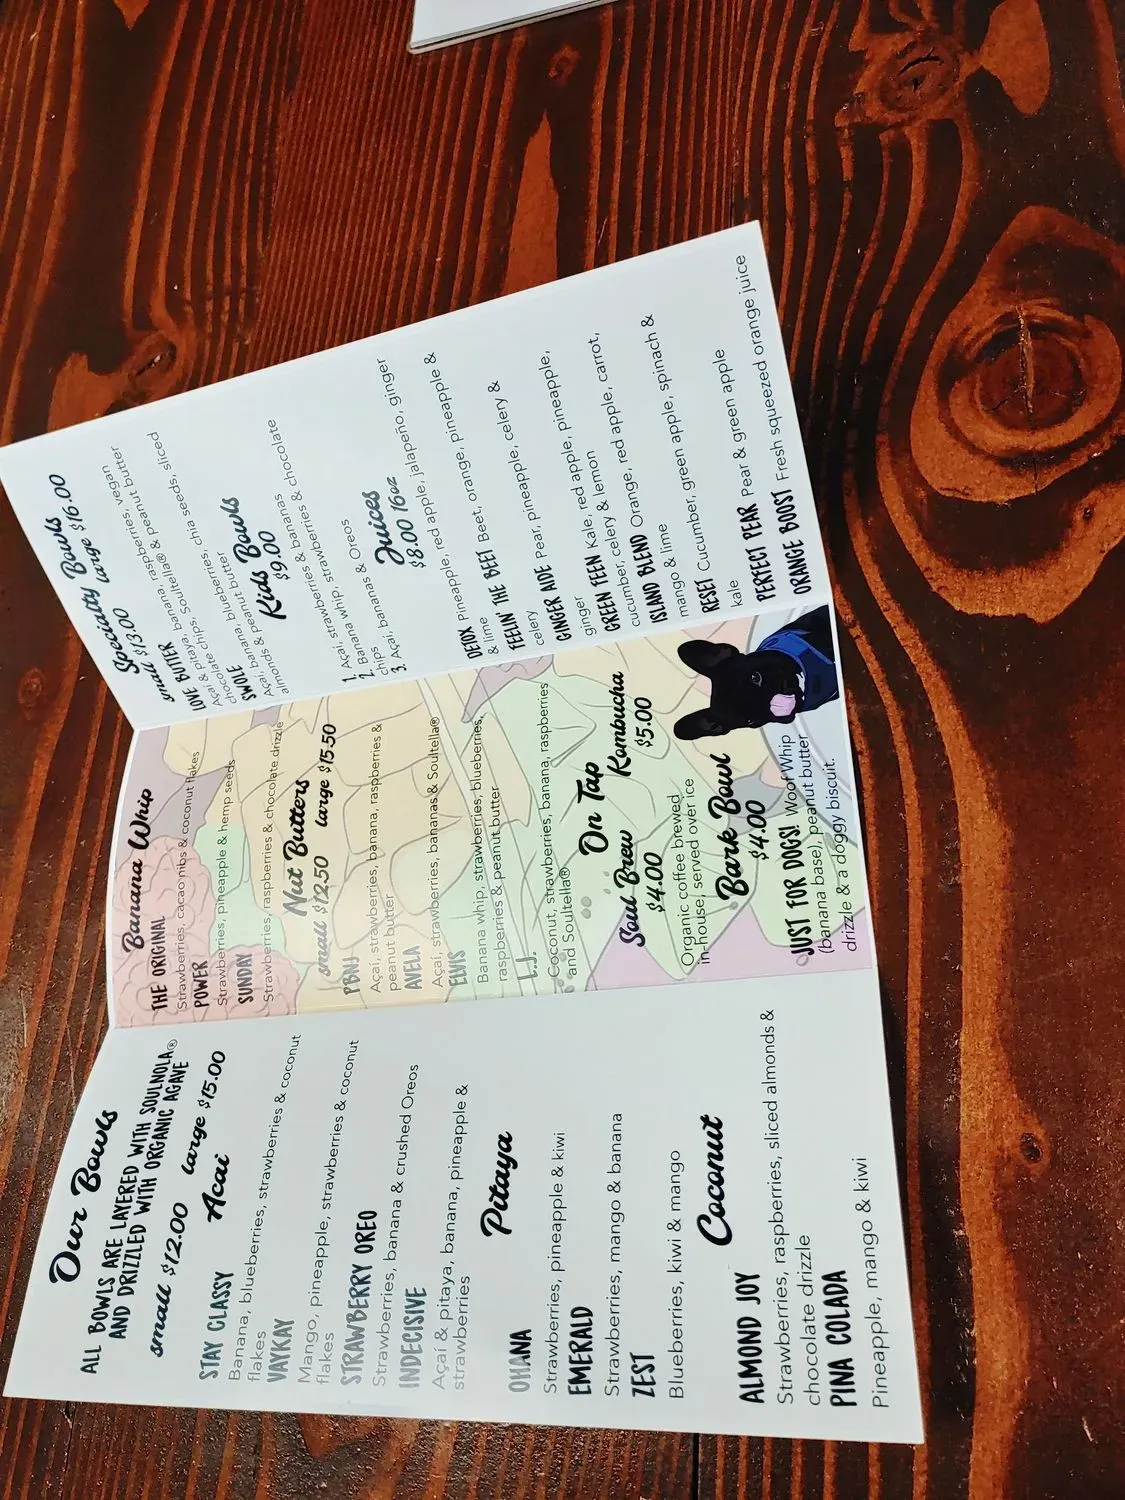 Our Bowls
ALL BOWLS ARE LAYERED WITH SOULNOLA®
AND DRIZZLED WITH ORGANIC AGAVE
small $12.00 large $15.00
Acai
STAY CLASSY
Banana, blueberries, strawberries & coconut
flakes
VAYKAY
Mango, pineapple, strawberries & coconut
flakes
STRAWBERRY OREO
Strawberries, banana & crushed Oreos
INDECISIVE
Açai & pitaya, banana, pineapple &
strawberries
Pitaya
OHANA
Strawberries, pineapple & kiwi
EMERALD
Strawberries, mango & banana
ZEST
Blueberries, kiwi & mango
Coconut
ALMOND JOY
Strawberries, raspberries, sliced almonds &
chocolate drizzle
PINA COLADA
Pineapple, mango & kiwi
Banana Whip
THE ORIGINAL
Strawberries, cacao nibs & coconut flakes
POWER
Strawberries, pineapple & hemp seeds
SUNDAY
Strawberries, raspberries & chocolate drizzle
Nut Butters
small $12.50 large $15.50
PBNJ
Açai, strawberries, banana, raspberries &
peanut butter
AVELA
Açai, strawberries, bananas & Soultella®
ELVIS
Banana whip, strawberries, blueberries,
raspberries & peanut butter
L.J.
Coconut, strawberries, banana, raspberries
and Soultella®
On Tap
Soul Brew Kombucha
$4.00 $5.00
Organic coffee brewed
in-house, served over ice
Bark Bowl
$4.00
JUST FOR DOGS! Woof Whip
(banana base), peanut butter
drizzle & a doggy biscuit.
Specialty Bowls
small $13.00 large $16.00
LOVE BUTTER
Açai & pitaya, banana, raspberries, vegan
chocolate chips, Soultella® & peanut butter
SWOLE
Açai, banana, blueberries, chia seeds, sliced
almonds & peanut butter
Kids Bowls
$9.00
1. Açai, strawberries & bananas
2. Banana whip, strawberries & chocolate
chips
3. Açai, bananas & Oreos
Juices
$8.00 16oz
DETOX Pineapple, red apple, jalapeño, ginger
& lime
FEELIN THE BEET Beet, orange, pineapple &
celery
GINGER AIDE Pear, pineapple, celery &
ginger
GREEN TEEN Kale, red apple, pineapple,
cucumber, celery & lemon
ISLAND BLEND Orange, red apple, carrot,
mango & lime
RESET Cucumber, green apple, spinach &
kale
PERFECT PEAR Pear & green apple
ORANGE BOOST Fresh squeezed orange juice